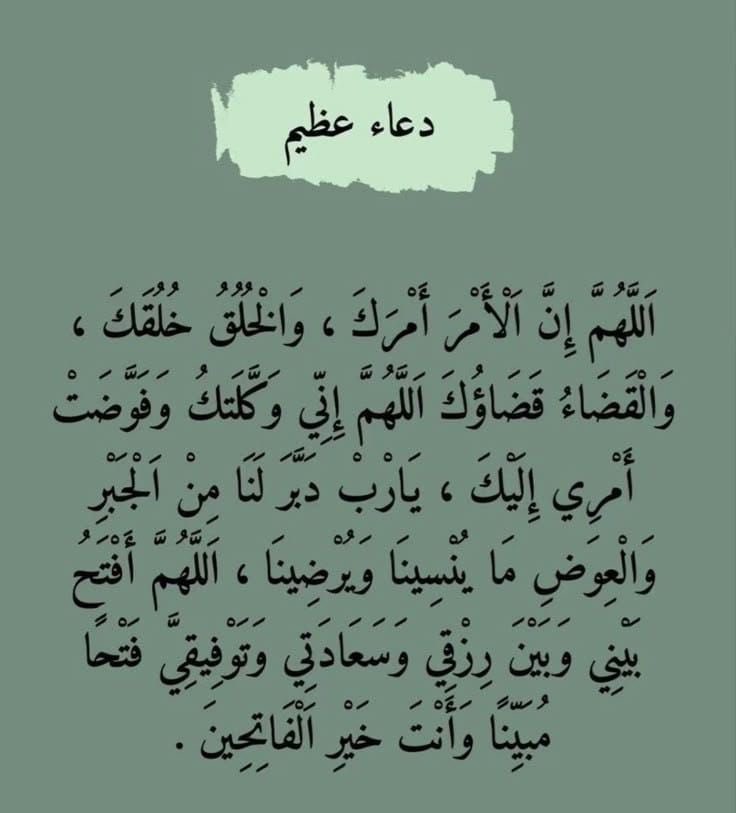 دعاء عظيم
اَللَّهُمَّ إِنَّ اَلْأَمْرَ أَمْرَكَ ، وَالْخُلُقُ خُلُقَكَ ،
وَالْقَضَاءُ قَضَاؤُكَ اَللَّهُمَّ إِنِّي وَكَّلَتكُ وَفَوَّضَتْ
أَمْرِي إِلَيْكَ ، يَارْبْ دَبَّرَ لَنَا مِنْ اَلْجَبْرِ
وَالْعِوَضِ مَا يُنْسِينَا وَيُرْضِينَا ، اَللَّهُمَّ أَفْتَحُ
بَيْنِي وَبَيْنَ رِزْقِي وَسَعَادَتِي وَتَوْفِيقِيَّ فَتْحًا
مُبَيِّنًا وَأَنْتَ خَيْرِ اَلْفَاتِحِينَ .